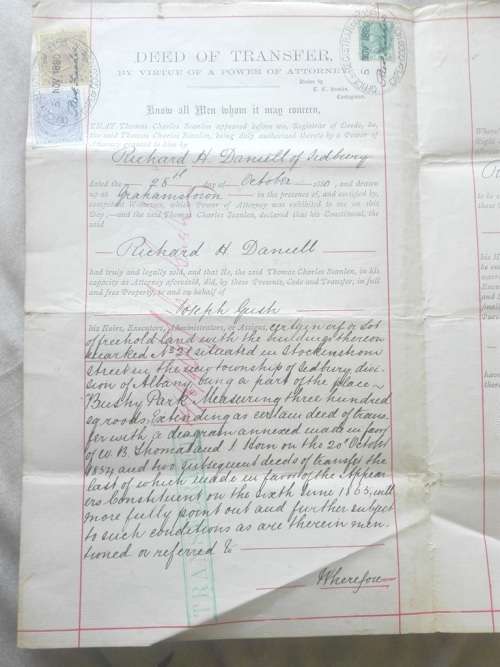 DEED OF TRANSFER,
BY VIRTUE OF A POWER OF ATTORNEY
Drawn by
Know all Men whom it may concern,
THAT Thomas Charles Scanlen appeared before me, Registrar of Deeds, he,
the said Thomas Charles Scanlen, being duly authorized thereto by a Power of
Attorney granted to him by
Richard H. Daniell of Sidbury
dated the 25th day of October 1880, and drawn
up Grahamstown in the presence of, and certified by,
competent Witnesses, which Power of Attorney was exhibited to me on this
Day,—and the said Thomas Charles Scanlen, declared that his Constituent, the
said
Richard H Daniell
had truly and legally sold, and that He, the said Thomas Charles Scanlen, in his
capacity as Attorney aforesaid, did, by these Presents, Cede and Transfer, in full
and free Property, to and on behalf of
Joseph Gush
his Heirs, Executors, Administrators, or Assigns, certain erf or lot
of freehold land with the buildings thereon
marked No 21 situated in Stockenstrom
street in the new township of Sidbury divi
sion of Albany being a part of the place
Bushy Park. Measuring three hundred
sq roods, Extending as certain deed of trans
fer with a diagram annexed made in favor
of W. B. Thomas and J. on the 20th October
1854 and two subsequent deeds of transfer the
last of which made in favor of the Appear
ers Constituent on the sixth June 1863, will
more fully point out and further subject
to such conditions as are therein men
tioned or referred to
Wherefore
TRA